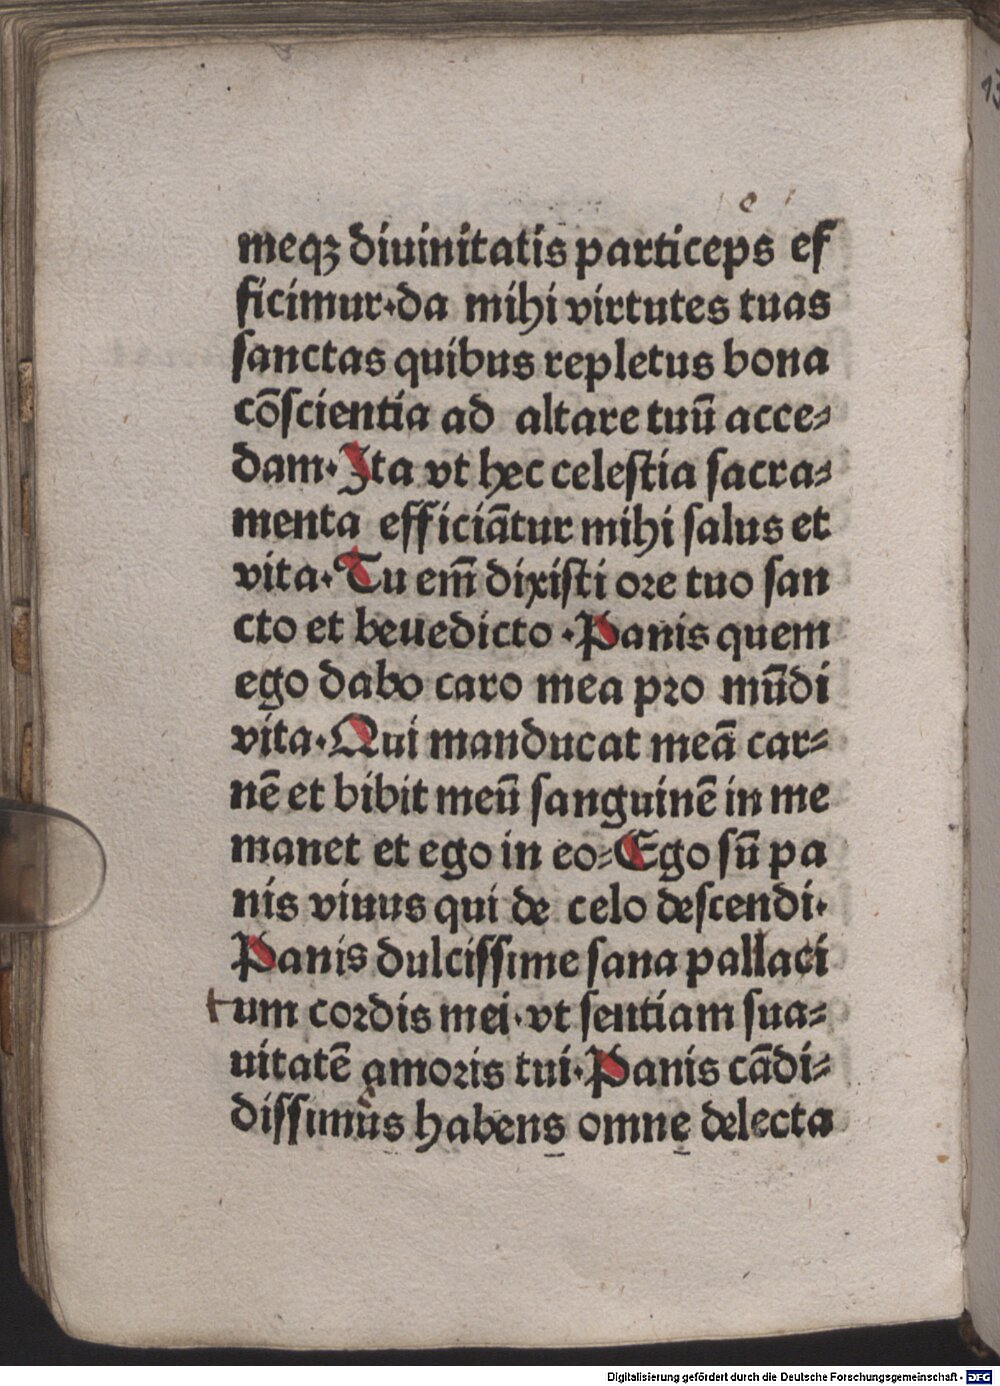 meqꝫ diuinitatis particeps ef
ficimur·da mihi virtutes tuas
sanctas quibus repletus bona
cōscientia ad altare tuū acce⸗
dam·Ita vt hec celestia sacra⸗
menta efficiātur mihi salus et
vita·Tu em̄ dixisti ore tuo san
cto et beuedicto·Panis quem
ego dabo caro mea pro mūdi
vita·Qui manducat meā car⸗
nē et bibit meū sanguinē in me
manet et ego in eo⸗Ego sū pa
nis viuus qui de celo descendi·
Panis dulcissime sana pallaci
um cordis mei·vt sentiam sua⸗
uitatē amoris tui·Panis cādi⸗
dissimus habens omne delecta
Digitalisierung gefördert durch die Deutsche Forschungsgemeinschaft - DFG